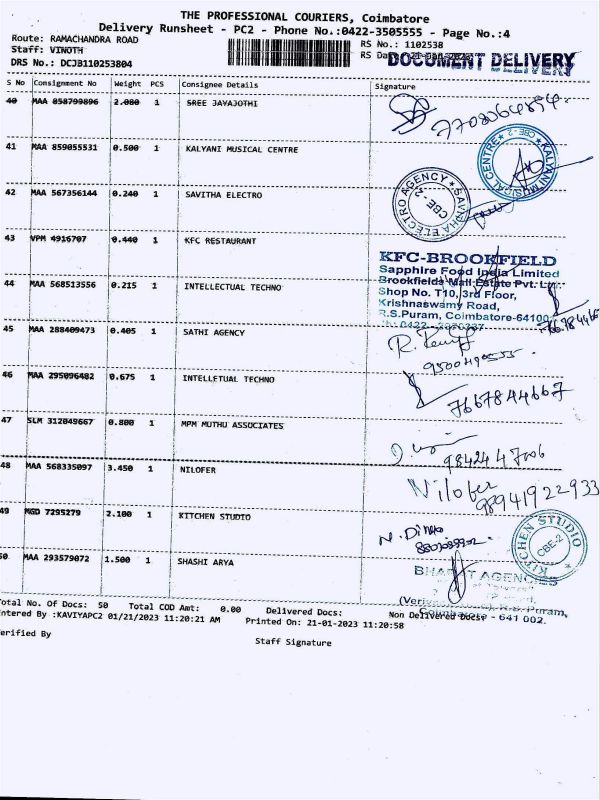 THE PROFESSIONAL COURIERS, Coimbatore
Delivery Runsheet - PC2 - Phone No.:0422-3505555 - Page No.:4
Route: RAMACHANDRA ROAD
Staff: VINOTH
DRS No.: DCJB110253804
RS No.: 1102538
DOCUMENT DELIVERY
S No Consignment No Weight PCS Consignee Details Signature
40 MAA 858799896 2.080 1 SREE JAYAJOTHI
41 MAA 859055531 0.500 1 KALYANI MUSICAL CENTRE
KALYANI MUSICAL CENTRE ★ CBE-2 ★
42 MAA 567356144 0.240 1 SAVITHA ELECTRO
SAVITHA ELECTRO AGENCY ★ CBE-2
43 VPM 4916707 0.440 1 KFC RESTAURANT
KFC-BROOKFIELD
Sapphire Food India Limited
Brookfields Mall Estate Pvt. Lt
Shop No. T10, 3rd Floor,
Krishnaswamy Road,
R.S.Puram, Coimbatore-64100
44 MAA 568513556 0.215 1 INTELLECTUAL TECHNO
45 MAA 288409473 0.405 1 SATHI AGENCY
46 MAA 295096482 0.675 1 INTELLETUAL TECHNO
7667844667
47 SLM 312049667 0.800 1 MPM MUTHU ASSOCIATES
9842447006
48 MAA 568335097 3.450 1 NILOFER
Nilofer
98941922933
49 MGD 7295279 2.100 1 KITCHEN STUDIO
KITCHEN STUDIO CBE-2
50 MAA 293579072 1.500 1 SHASHI ARYA
BHARAT AGENCIES
R.S. Puram,
Coimbatore - 641 002.
Total No. Of Docs: 50 Total COD Amt: 0.00 Delivered Docs: Non Delivered Docs:
ntered By :KAVIYAPC2 01/21/2023 11:20:21 AM Printed On: 21-01-2023 11:20:58
erified By
Staff Signature